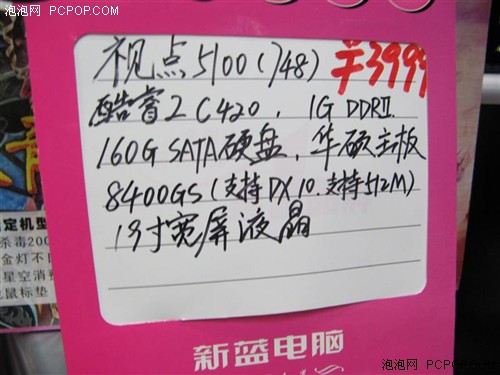 泡泡网 PCPOP.COM
视点5100(748) ¥3999
酷睿2 C420, 1G DDRII
160G SATA硬盘, 华硕主板
8400GS(支持DX10.支持512M)
19寸宽屏液晶
指定机型
杀毒200
金灯不
星空消
鼠标垫
新蓝电脑
泡泡网 PCPOP.COM